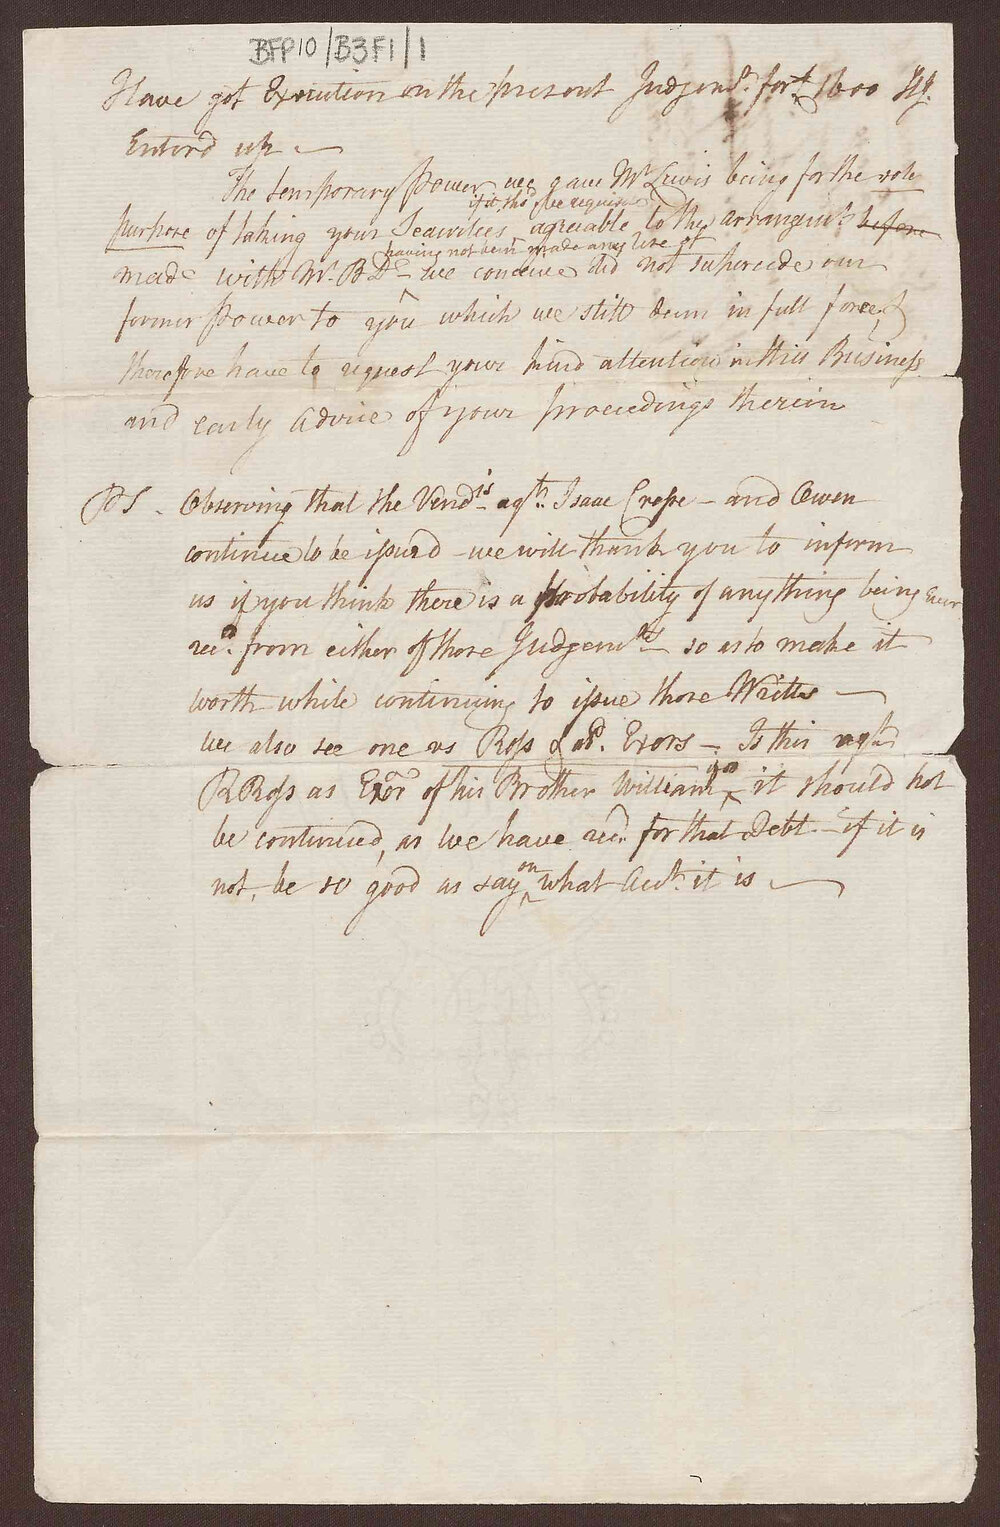 BFP10/B3F1/1
Have got Execution on the present Judgemt. for £1600 Stg.
Enterd up —
The temporary Power we gave Mr. Lewis being for the sole
if it shod. be required
purpose of taking your Securities agreeable to the arrangemts. before
having not been made any use of
made with Mr. B we conceive did not supercede our
former Power to you which we still deem in full force, &
therefore have to request your kind attention in this Business
and early Advice of your proceedings therein
PS. Observing that the Vendis. agt. Isaac Crope — and Owen
continue to be issued — we will thank you to inform
us if you think there is a probability of anything being Ever
recd. from either of those Judgemts. so as to make it
worth while continuing to issue those Writts —
We also see one vs Ross & al. Exors — Is this agt.
R Ross as Exor of his Brother William, if so it should not
be continued, as We have recd. for that Debt — if it is
not, be so good as say on what Acct. it is —